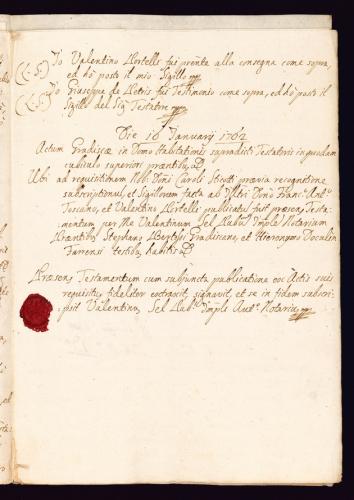 (L.S.) Io Valentino Hortells fui pnte alla consegna come sopra,
ed hò posto il mio Sigillo
(L.S.) Io Giuseppe de Petris fui Testimonio come sopra, ed hò posto il
Sigillo del Sig. Testatre
Die 16 January 1762
Actum Gradiscæ in Domo habitationis supradicti Testatoris in quodam
cubiculo superiori præsentibus
Ubi ad requisitionem Nob. Dñi Caroli prævia recognitione
subscriptionum, et Sigillorum facta ab Dno Franc. Ant.
Toscano, et Valentino Hortells publicatū fuit præsens Testa-
mentum per Me Valentinum Sel Rub. Imple Notarium
Stephano Bertossi Gradiscano, et Hieronymo
Farrensi testibus habitis
Præsens Testamentum cum subjuncta publicatione ex Actis suis
requisitus fideliter extraxit, signavit, et se in fidem subscri-
psit Valentinus Sel Rub. Imple Aut. Notarius